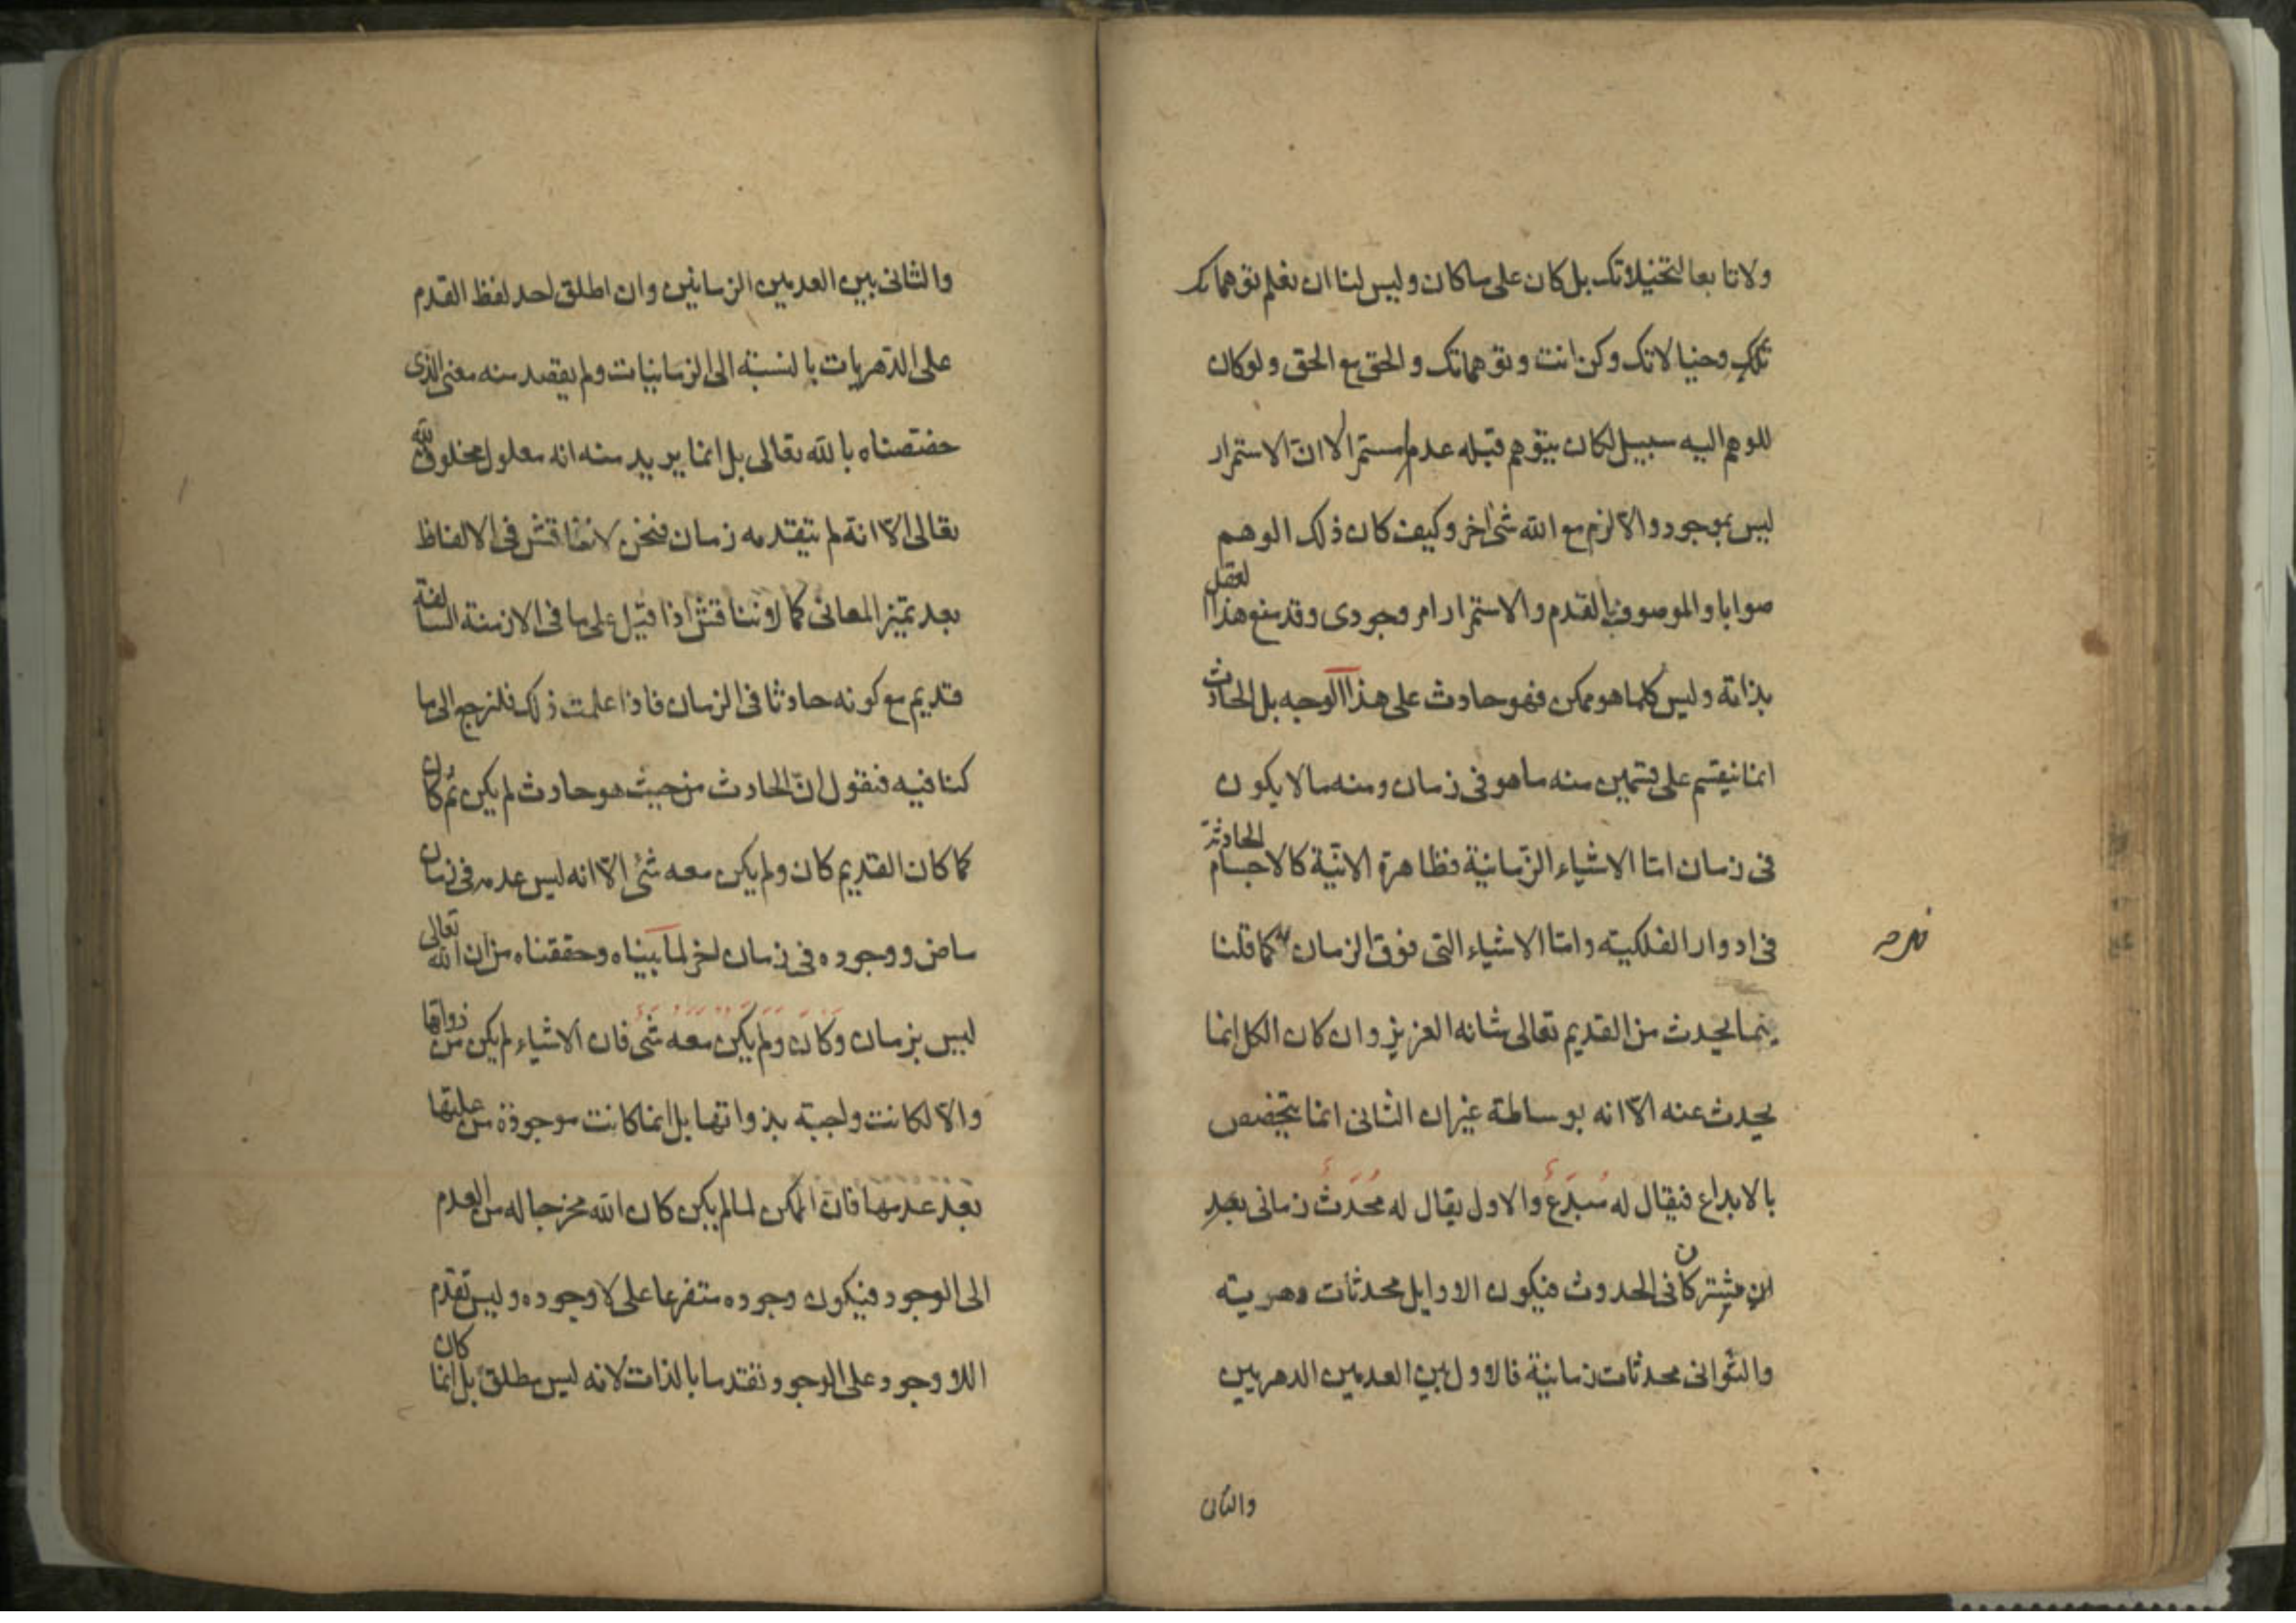 ولا تابعا لتخيلاتك بل كان على ما كان وليس لنا ان نعلم توهماتك
تلك وخيالاتك وكن انت وتوهماتك والحق مع الحق ولو كان
للوهم اليه سبيل لكان يتوهم قبله عدم مستمرا لا ان الاستمرار
ليس بموجود والا لزم مع الله شئ اخر وكيف كان ذلك الوهم
صوابا والموصوف بالقدم والاستمرار امر وجودى وقد منع هذا العقل
بذاته وليس كلما هو ممكن فهو حادث على هذا الوجه بل الحادث
انما ينقسم على قسمين منه ما هو فى زمان ومنه ما لا يكون
فى زمان اما الاشياء الزمانية فظاهرة الانية كالاجسام الحادثة
فى ادوار الفلكيته واما الاشياء التى فوق الزمان كما قلنا
فيما يحدث من القديم تعالى شانه العزيز وان كان الكل انما
يحدث عنه الا انه بوساطة غير ان الثانى انما يتخصص
بالابداع فيقال له مُبدَع والاول يقال له مُحدَث زمانى بعد
ان مشتركان فى الحدوث فيكون الاوايل محدثات دهريته
والثوانى محدثات زمانية فالاول بين العدمين الدهريين
والثانى
والثانى بين العدمين الزمانين وان اطلق احد لفظ القدم
على الدهريات بالنسبته الى الزمانيات ولم يقصد منه معنى الذى
خصصناه بالله تعالى بل انما يريد منه انه معلول مخلوق لله
تعالى الا انه لم يتقدمه زمان فنحن لا نناقش فى الالفاظ
بعد تميز المعانى كما لا نناقش اذا قيل على ما فى الازمنة السالفة
قديم مع كونه حادثا فى الزمان فاذا علمت ذلك فلنرجع الى ما
كنا فيه فنقول ان الحادث من حيث هو حادث لم يكن ثم كان
كما كان القديم كان ولم يكن معه شئ الا انه ليس عدمه فى زمان
ماض ووجوده فى زمان اخر لما بيناه وحققناه من ان الله تعالى
ليس بزمان وكان ولم يكن معه شئ فان الاشياء لم يكن من ذواتها
والا لكانت واجبته بذواتها بل انما كانت موجودة من علتها
بعد عدمها فان الممكن لما لم يكن كان الله مخرجا له من العدم
الى الوجود فيكون وجوده متفرعا على لا وجوده وليس تقدم
اللاوجود على الوجود تقدما بالذات لانه ليس مطلق بل انما كان